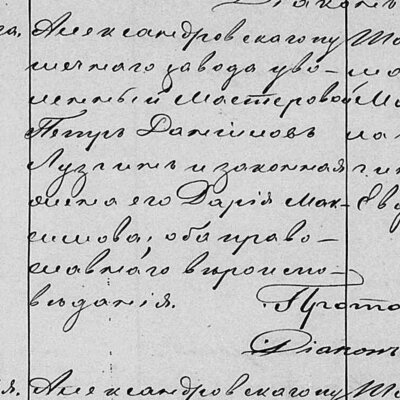 Діаконъ
га. Александровскаго пу Та
шечнаго завода уво-
ленный Мастеровой Ма
Петръ Даниловъ
Лузгинъ и законная
жена его Дарія Мак- Ев
симова; оба право-
славнаго вѣроиспо-
вѣданія.
Прото
Діаконъ
я. Александровскаго пу